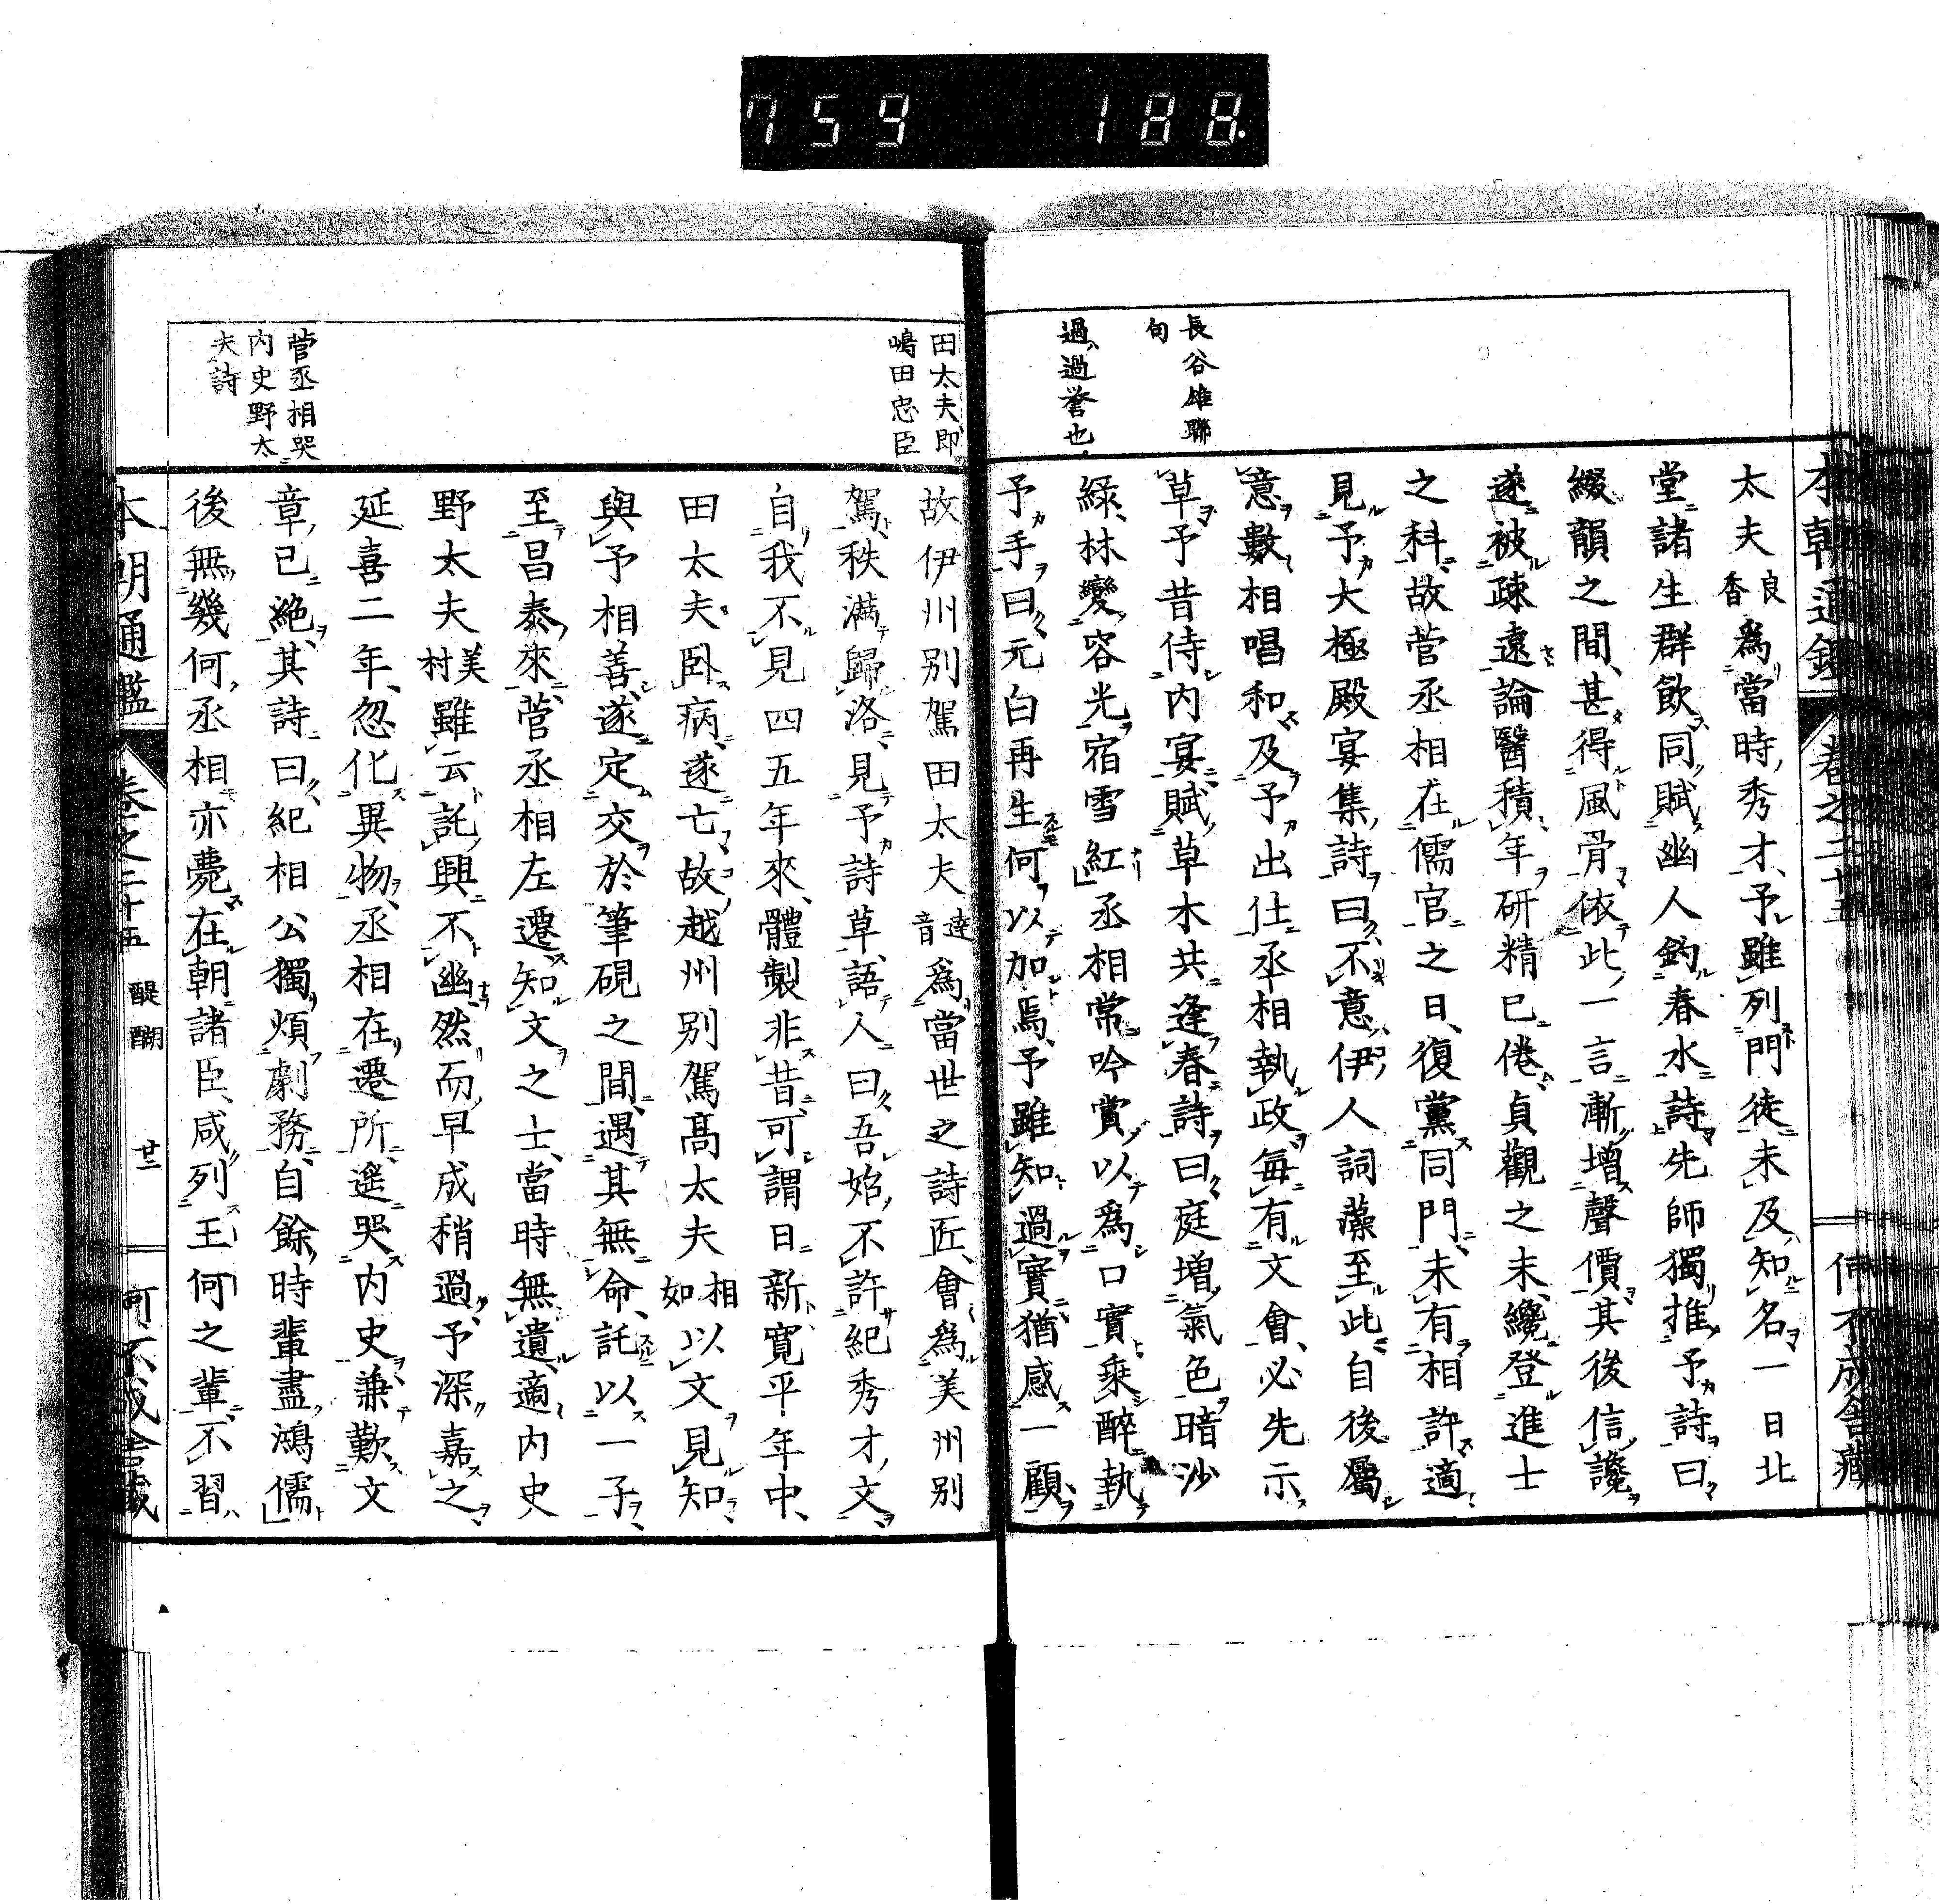 759 188.
本朝通鑑 卷之二十五 何不成舎藏
長谷雄聯
句
過過譽也
太夫良香為當時秀才予雖列門徒未及知名一日北
堂諸生群飲同賦幽人釣春水詩先師獨推予詩曰
綴韻之間甚得風骨依此一言漸增聲價其後信讒
遂被疎遠論醫積年研精已倦貞觀之末纔登進士
之科故菅丞相在儒官之日復黨同門未有相許適
見予大極殿宴集詩曰不意伊人詞藻至此自後屬
意數相唱和及予出仕丞相執政每有文會必先示
草予昔侍内宴賦草木共逢春詩曰庭增氣色暗沙
綠林變容光宿雪紅丞相常吟賞以為口實乗醉執
予手曰元白再生何以加焉予雖知過實猶感一顧
田太夫即
嶋田忠臣
菅丞相哭
内史野太
夫詩
故伊州別駕田太夫達音為當世之詩匠會為美州別
駕秩滿歸洛見予詩草語人曰吾始不許紀秀才文
自我不見四五年來體製非昔可謂日新寬平年中
田太夫卧病遂亡故越州別駕高太夫相如以文見知
與予相善遂定交於筆硯之間遇其無命託以一子
至昌泰來菅丞相左遷知文之士當時無遺適内史
野太夫美村雖云託興不幽然而早成稍過予深嘉之
延喜二年忽化異物丞相在遷所遥哭内史兼歎文
章已絶其詩曰紀相公獨煩劇務自餘時輩盡鴻儒
後無幾何丞相亦薨在朝諸臣咸列王何之輩不習
本朝通鑑 卷之二十五 醍醐 廿二 何不成舎藏